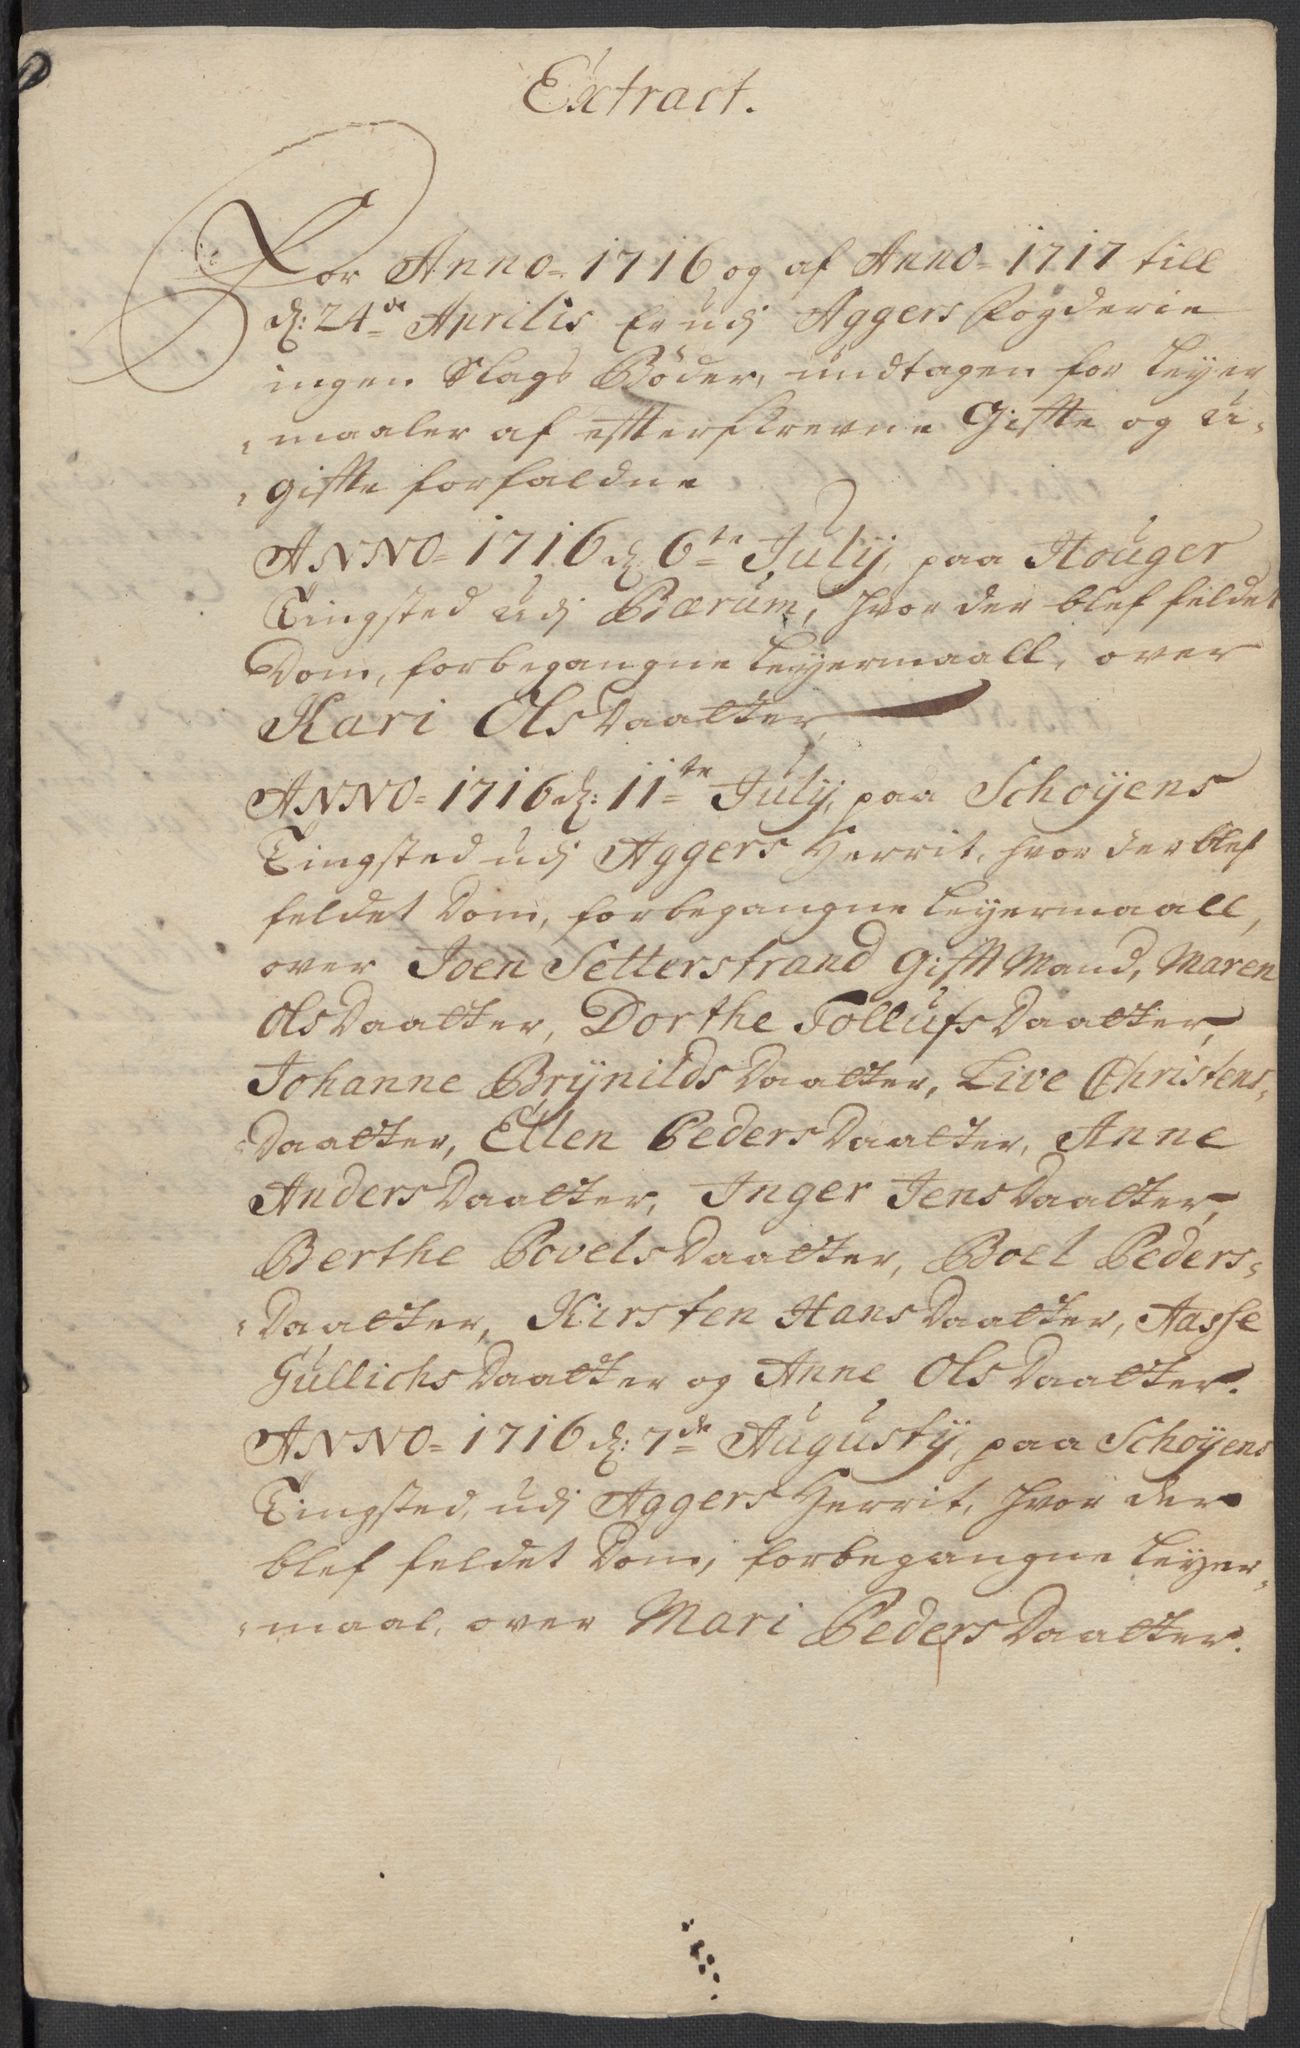 Extract.
For Anno= 1716 og af Anno= 1717 till
d: 24de Aprilis Er udj Aggers Fogderie
ingen Slags Böder, undtagen for Leyer
=maaler af efterskrevne Gifte og U=
=gifte forfaldne
ANNO= 1716 d: 6te Julij, paa Houger
Tingsted udj Bærum, hvor der blef feldet
Dom, forbegangne Leyermaall, over
Kari OlsDaatter,
ANNO= 1716 d: 11te Julij, paa Schoÿens
Tingsted udj Aggers Herrit, hvor der blef
feldet Dom, forbegangne Leyermaall,
over Joen Setterstrand Gift Mand, Maren
OlsDaatter, Dorthe TollufsDaatter,
Johanne BrÿnildsDaatter, Live Christens=
=Daatter, Ellen PedersDaatter, Anne
AndersDaatter, Inger JensDaatter,
Berthe PovelsDaatter, Boel Peders=
=Daatter, Kirsten HansDaatter, Aasse
GullichsDaatter og Anne OlsDaatter.
ANNO= 1716 d: 7de Augustij, paa Schoÿens
Tingsted, udj Aggers Herrit, hvor der
blef feldet Dom, forbegangne Leyer=
=maal, over Mari PedersDaatter.